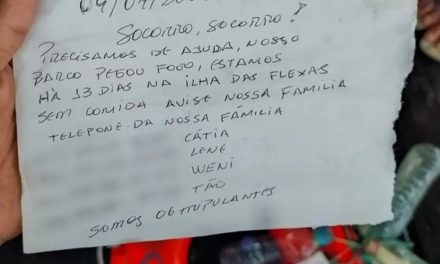 SOCORRO, SOCORRO!
PRECISAMOS DE AJUDA, NOSSO
BARCO PEGOU FOGO, ESTAMOS
HÁ 13 DIAS NA ILHA DAS FLEXAS
SEM COMIDA AVISE NOSSA FAMILIA
TELEFONE DA NOSSA FÁMILIA
CÁTIA
LENE
WENI
TÃO
SOMOS 06 TRIPULANTES